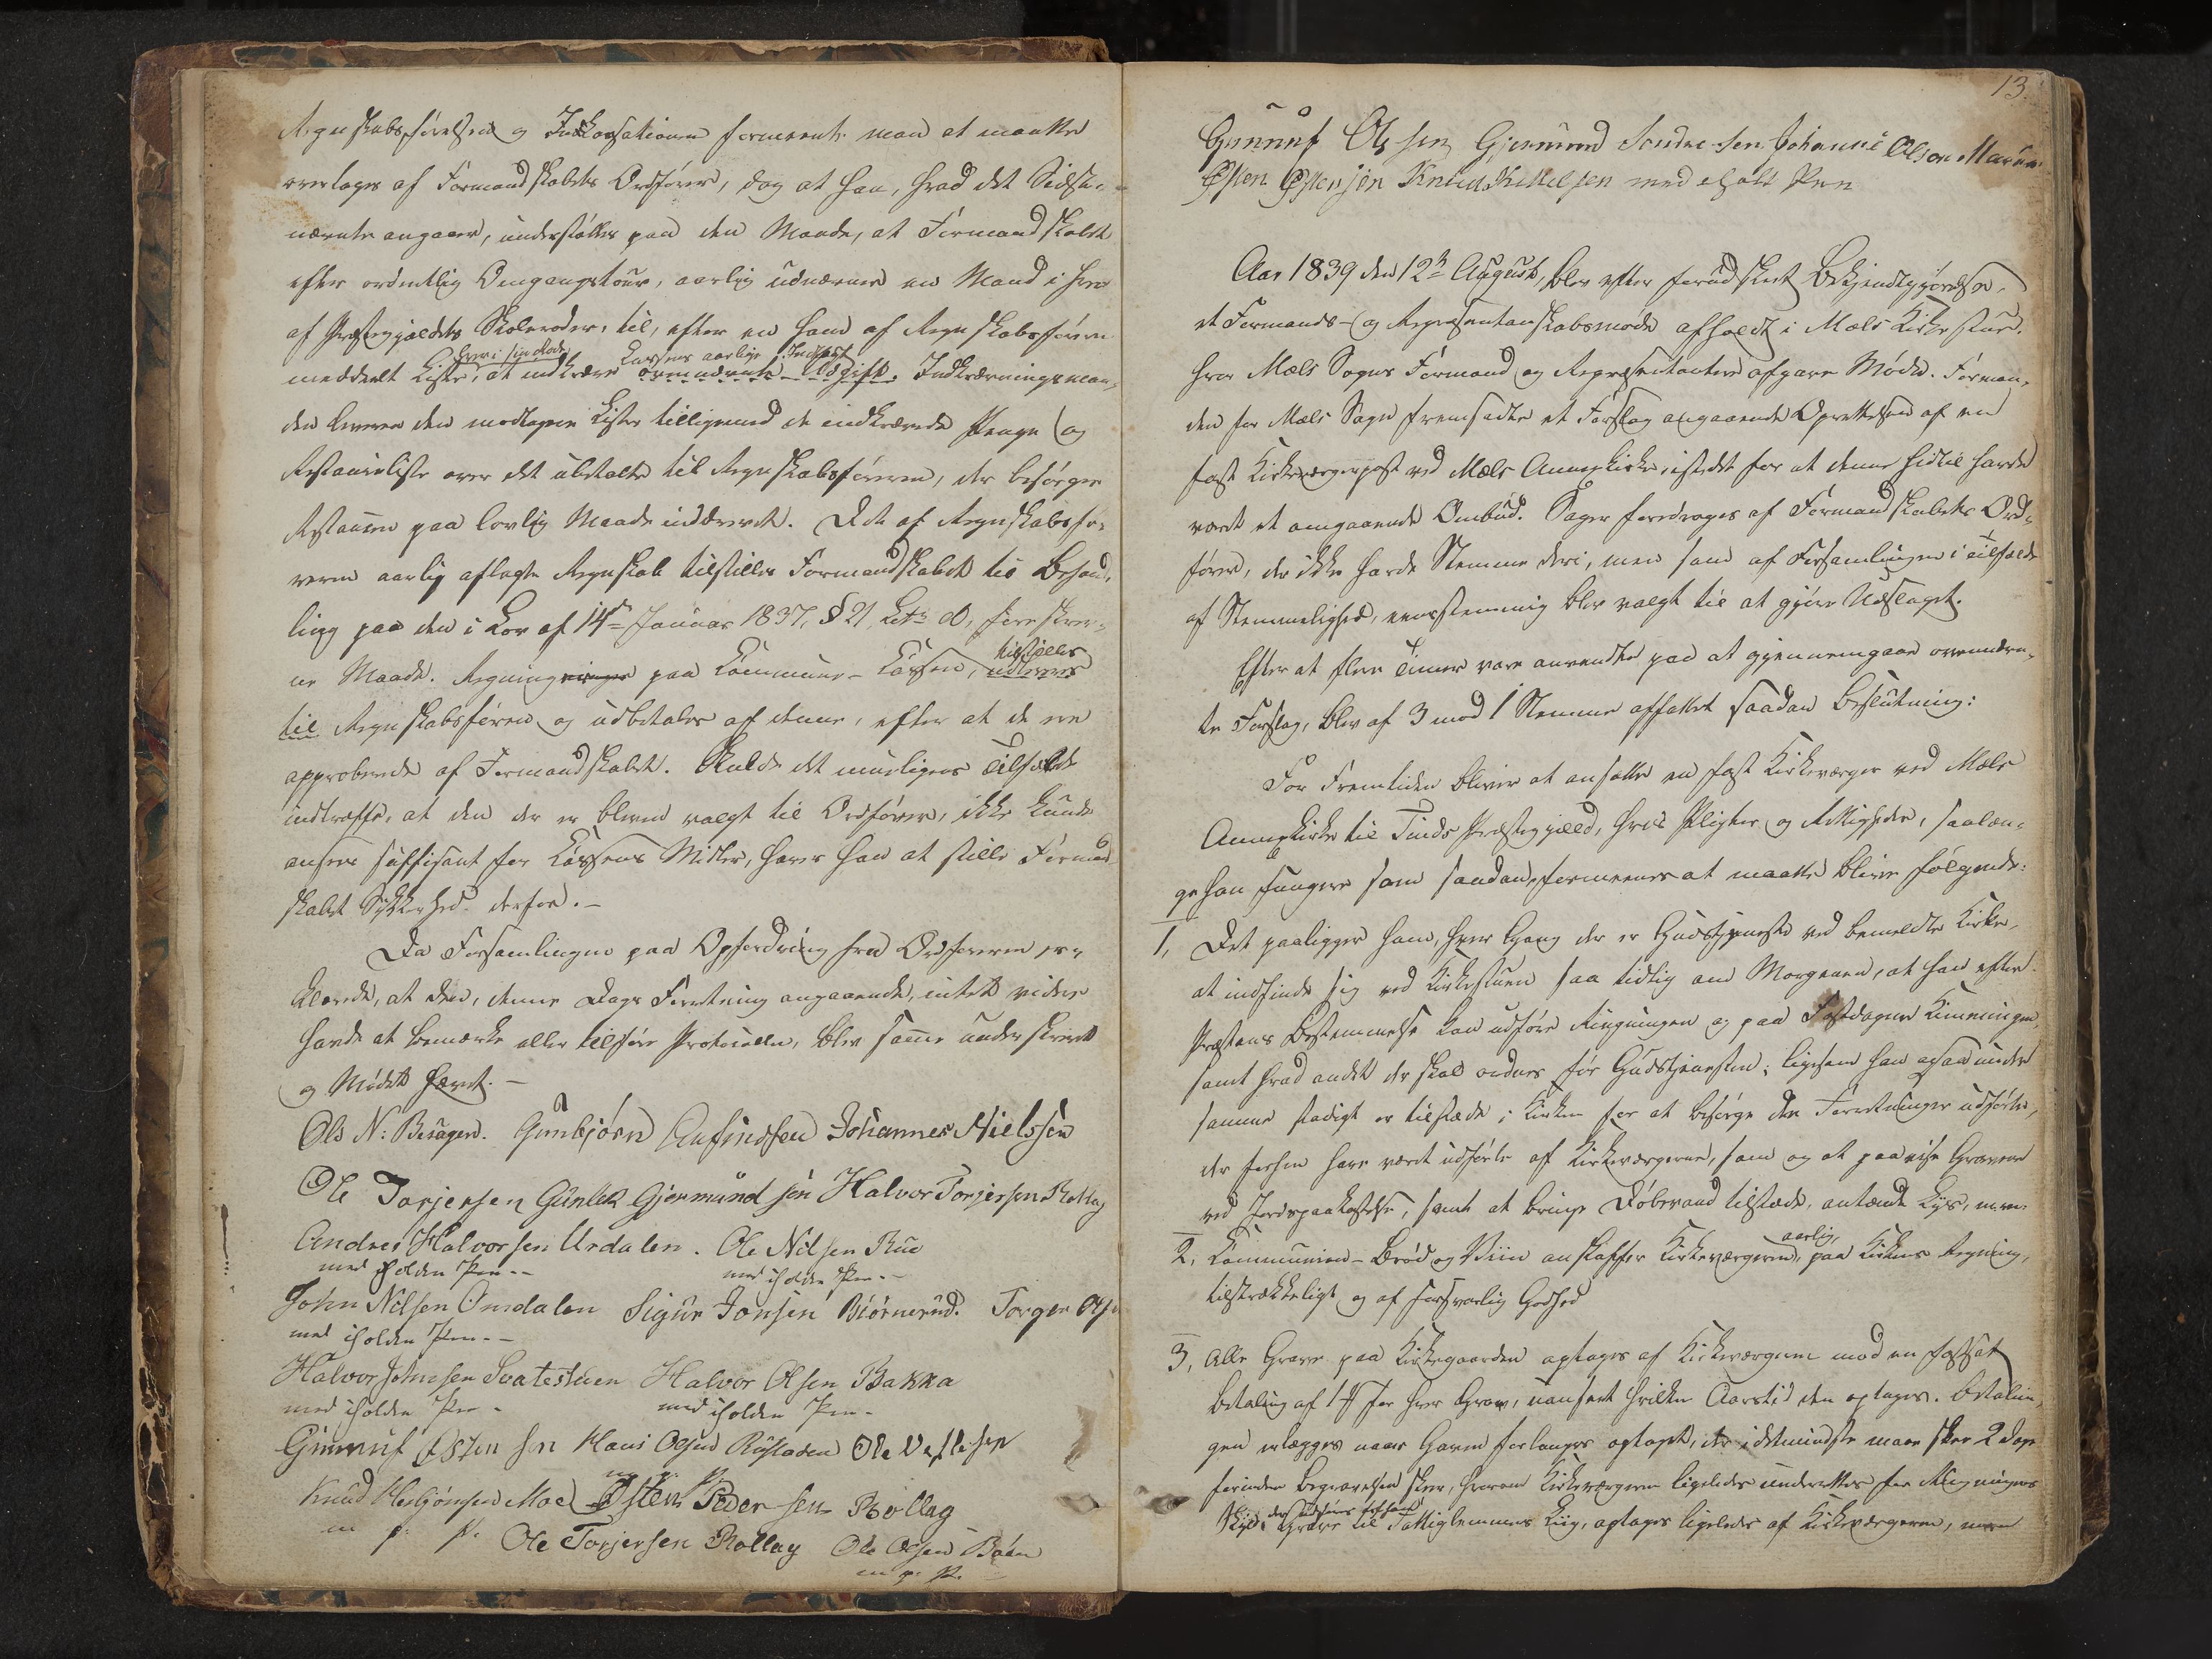 Regnskabsførelsen og Inkassationen formeente man at maatte
overtages af Formandskabets Ordfører, dog at han, hvad det Sidst-
nævnte angaaer, understøttes paa den Maade, at Formandskabet
efter ordentlig Omgangstour, aarlig udnævner en Mand i hver
af Præstegjeldets Skoleroder, til, efter en ham af Regnskabsføreren
hver i sin Rode Cassens aarlige Indtægt
meddeelt Liste, at indkræve ovennævnte Afgift. Indkrævningsman-
den leverer den modtagne Liste tilligemed de indkrævede Penge og
Restanceliste over det ubetalte til Regnskabsføreren, der besørger
Restancen paa lovlig Maade inddrevet. Det af Regnskabsfø-
reren aarlig aflagte Regnskab tilstilles Formandskabet til Behand-
ling paa den i Lov af 14de Januar 1837, § 21, Litr. d, foreskrev-
tilstilles
ne Maade. Regninger paa Commune-Cassen, udleveres
til Regnskabsføreren og udbetales af denne, efter at de ere
approberede af Formandskabet. Skulde det muligens Tilfælde
indtræffe, at den der er bleven valgt til Ordfører, ikke kunde
ansees suffisant for Cassens Midler, haver han at stille Formand-
skabet Sikkerhed derfor.-
Da Forsamlingen paa Opfordring fra Ordføreren er-
klærede, at den, denne Dags Forretning angaaende, intet videre
havde at bemærke eller tilføre Protocollen, blev samme underskrevet
og Mødet hævet.-
Ole N: Besagen. Gunbjørn Anfindsen Johannes Nielssen
Ole Torjersen Gunlek Gjermundsøn Halvor Torgersen Rollag
Andres Halvorsen Urdalen. Ole Nilsen Rue
med iholden Pen -- med iholden Pen.-
John Nilsen Omdalen Sigur Jonsen Biørnerud. Torger Ols
med iholden Pen.--
Halvor Johnsen Svatestuen Halvor Olsen Bakka
med iholden Pen - med iholden Pen-
Gunnuf Østensen Hans Olsen Rustaden Ole Vetlesen
m. p. P.
Knud Herljønsen Moe Østen Pedersen Rollag
m p. P. Ole Torjersen Rollag Ole Olsen Bøen
m. p. P.
13.
Gunnuf Olssen Gjermund Sondresen Johannes Olson Marum
Østen Østensen Knud Kittelsen med eholt Pen
Aar 1839 den 12te August, blev efter forudskeet Bekjendtgjørelse,
et Formands- og Repræsentantskabsmøde afholdt i Mæls Kirkestue,
hvor Mæls Sogns Formand og Repræsentanter afgave Møde. Forman-
den for Mæls Sogn fremsadte et Forslag angaaende Oprettelsen af en
fast Kirkeværgerpost ved Mæls Annexkirke, istedet for at denne hidtil havde
været et omgaaende Ombud. Sagen foredroges af Formandskabets Ord-
fører, der ikke havde Stemme deri, men som af Forsamlingen i Tilfælde
af Stemmelighed, eenstemmig blev valgt til at gjøre Udslaget.
Efter at flere Timer vare anvendte paa at gjennemgaae ovennævn-
te Forslag, blev af 3 mod 1 Stemme affattet saadan Beslutning:
For Fremtiden bliver at ansætte en fast Kirkeværger ved Mæls
Annexkirke til Tinds Præstegjæld, hvis Pligter og Rettigheder, saalæn-
ge han fungerer som saadan, formenes at maatte blive følgende:
1, Det paaligger ham, hver Gang der er Gudstjeneste ved bemeldte Kirke,
at indfinde sig ved Kirkestuen saa tidlig om Morgenen, at han efter
Præstens Bestemmelse kan udføre Ringningen og paa Festdagene Kimningen,
samt hvad andet der skal ordnes før Gudstjenesten; ligesom han ogsaa under
samme stadigt er tilstæde i Kirken for at besørge de Forretninger udførte,
der forhen have været udførte af Kirkeværgerne, som og at paavise Gravene
ved Jordspaakastelse, samt at bringe Døbevand tilstæde, antænde Lys, m.m.
aarlig
2, Kommunion-Brød og Viin anskaffer Kirkeværgeren, paa Kirkens Regning,
tilstrækkeligt og af forsvarlig Godhed
3, Alle Grave paa Kirkegaarden optages af Kirkeværgeren mod en fastsat
Betaling af 1 ₰ for hver Grav, uanseet hvilken Aarstid den optages. Betalin-
gen erlægges naar Graven forlanges optaget, der idetmindste maa skee 2 Dage
forinden Begravelsen skeer, hvorom Kirkeværgeren ligeledes underrettes for Ringningens
Skyld. Grave til Fattiglemmers Liig, optages ligeledes af Kirkeværgeren, men